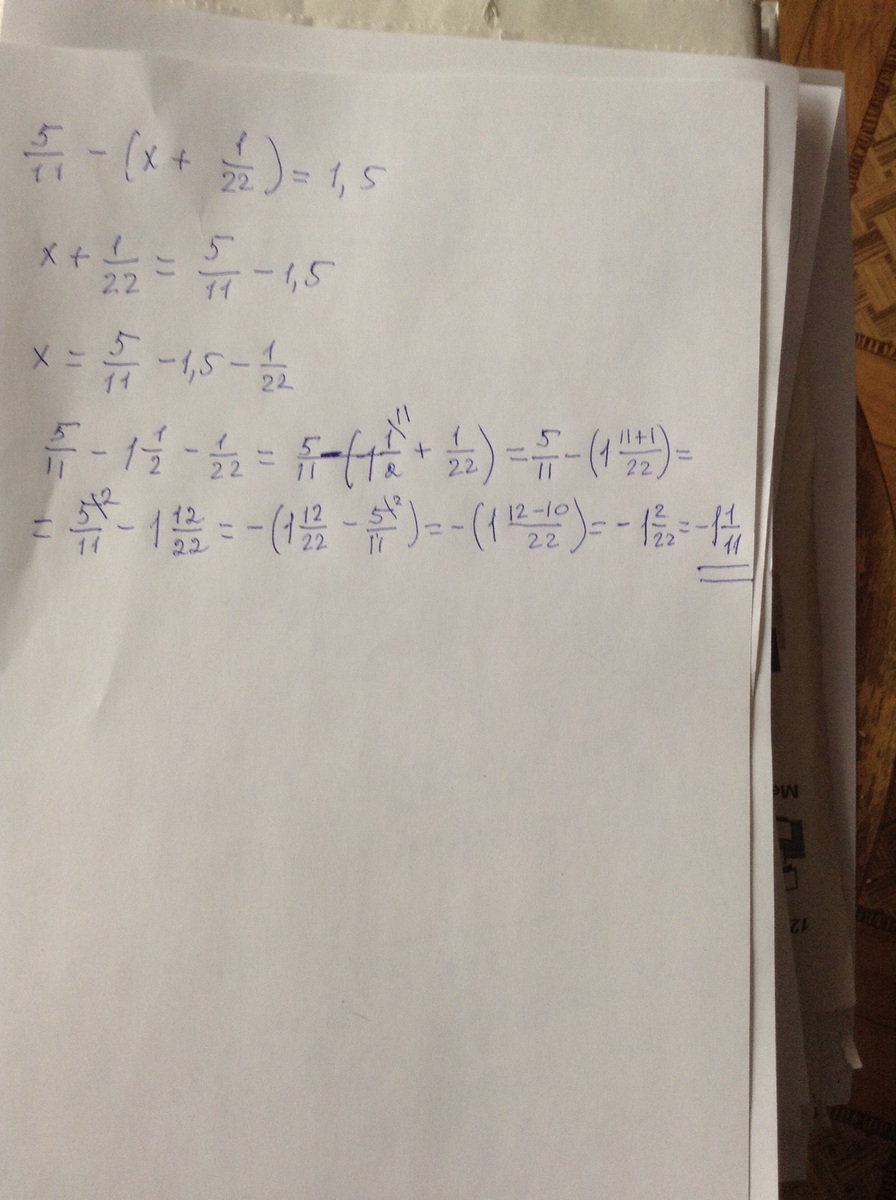 5/11 - (x + 1/22) = 1,5
x + 1/22 = 5/11 - 1,5
x = 5/11 - 1,5 - 1/22
5/11 - 1 1/2 - 1/22 = 5/11 - (1 1\11/2 + 1/22) = 5/11 - (1 11+1/22) =
= 5\2/11 - 1 12/22 = -(1 12/22 - 5\2/11) = -(1 12-10/22) = -1 2/22 = -1 1/11
Me
12